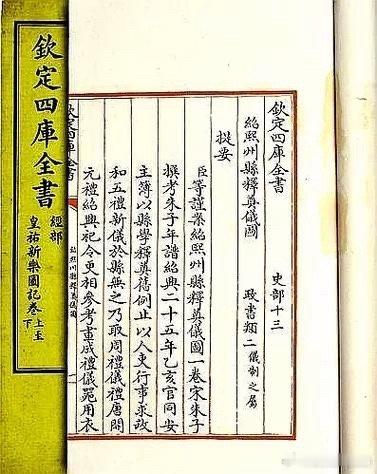 欽定四庫全書 史部十三
紹熙州縣釋奠儀圖 政書類二儀制之屬
提要
臣等謹案紹熙州縣釋奠儀圖一卷宋朱子
撰考朱子年譜紹興二十五年乙亥官同安
主簿以縣學釋奠舊例止以人吏行事求政
和五禮新儀於縣無之乃取周禮儀禮唐開
元禮紹興祀令更相參考畫成禮儀器用衣
欽定四庫全書
紹熙州縣釋奠儀圖
欽定四庫全書
經部
皇祐新樂圖記卷上至下